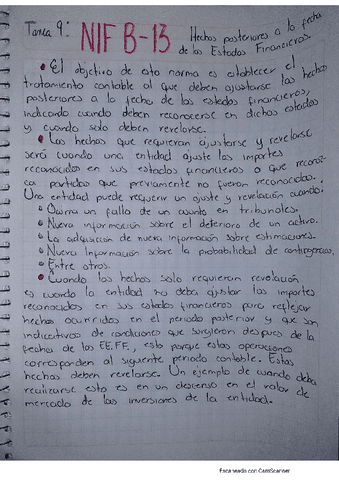 Tarea 9: NIF B-13 Hechos posteriores a la fecha
de los Estados Financieros.
• El objetivo de esta norma es establecer el
tratamiento contable al que deben ajustarse los hechos
posteriores a la fecha de los estados financieros,
indicando cuando deben reconocerse en dichos estados
y cuando solo deben revelarse.
• Los hechos que requieran ajustarse y revelarse
será cuando una entidad ajuste los importes
reconocidos en sus estados financieros o que reconoz-
ca partidas que previamente no fueron reconocidas.
Una entidad puede requerir un ajuste y revelación cuando:
• Ocurra un fallo de un asunto en tribunales.
• Nueva información sobre el deterioro de un activo.
• La adquisición de nueva información sobre estimaciones.
• Nueva Información sobre la probabilidad de contingencias.
• Entre otros.
• Cuando los hechos solo requieran revelación
es cuando la entidad no deba ajustar los importes
reconocidos en sus estados financieros para reflejar
hechos ocurridos en el periodo posterior y que son
indicativos de condiciones que surgieron despues de la
fecha de los EE.FF., esto porque estas operaciones
corresponden al siguiente periodo contable. Estos
hechos deben revelarse. Un ejemplo de cuando deba
realizarse esto es en un descenso en el valor de
mercado de las inversiones de la entidad.
Escaneado con CamScanner